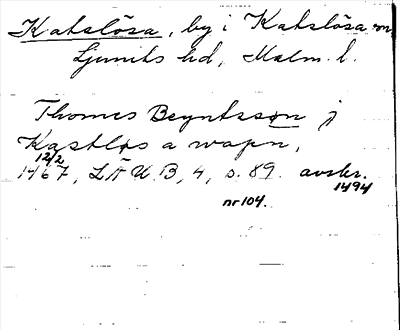 Katslösa, by i Katslösa sn
Ljunits hd, Malm. l.
Thomes Beyntsson j
Kastløs a wapn,
12/2
1467, LÄUB, 4, s. 89. avskr.
1494
nr 104.